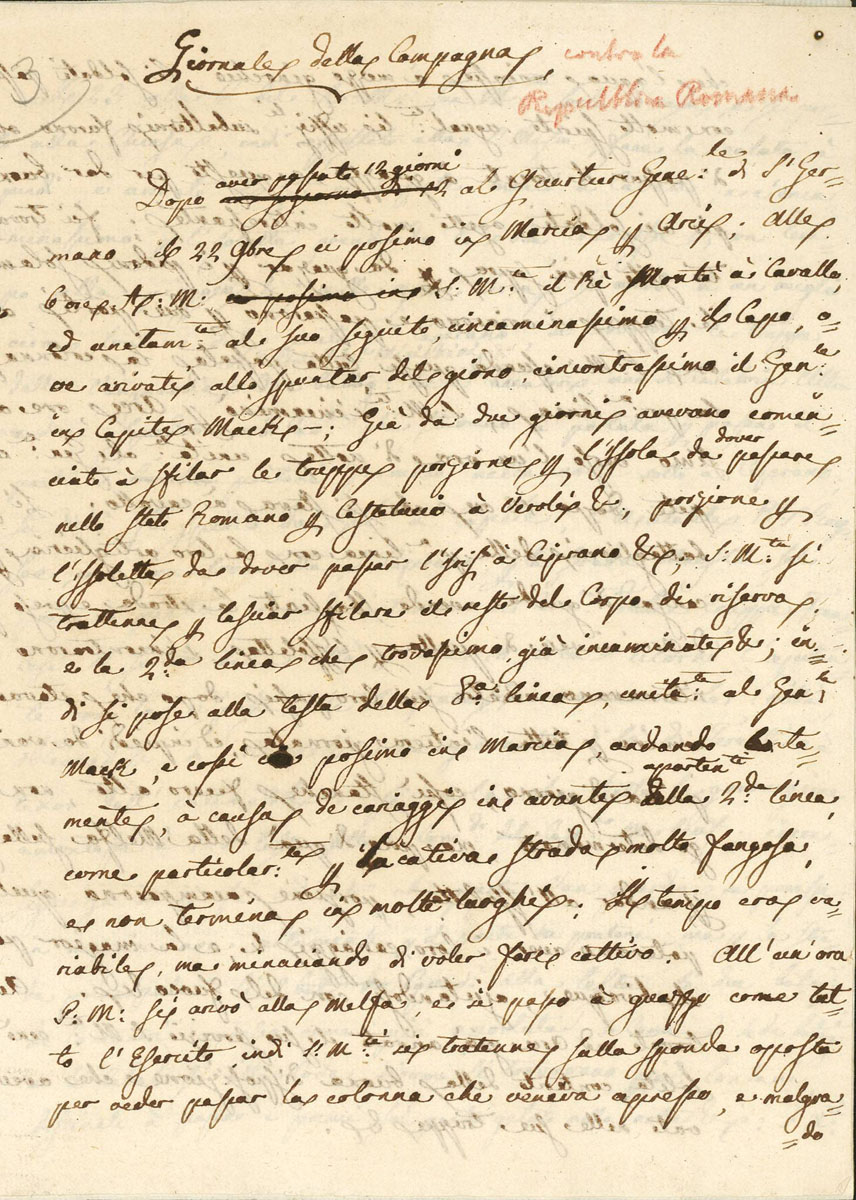 3
Giornale della Campagna, contro la
Repubblica Romana
aver passato 12 giorni
Dopo al Quartier Gene:le di S:t Ger-
mano il 22 9bre ci posimo in Marcia p Arce; Alle
6 ore A: M: ci posimo in S: M:tà il Rè Montò à Cavallo,
ed unitam:te al suo seguito, incaminassimo p il Capo, o-
ve arivati allo spuntar del giorno, incontrassimo il Gen:le
in Capite Mack —; Già da due giorni avevano comin-
ciato à sfilar le truppe porzione p l'Issola da dover passare
nello Stato Romano p Casteluccio à Veroli &, porzione p
l'Issoletta da dover passar à Ciprano &; S: M:tà si
trattenne p lasciar sfilare il resto del Corpo di riserva,
e la 2:da linea che trovassimo già incaminata &; in-
di si pose alla testa della 3:a linea, unita:te al Gen:le
Mack, e così ci posimo in Marcia, andando lenta-
mente, à causa de cariaggi in avante apartenti della 2:da linea,
come particolar:te p la cativa strada molto fangosa,
e non termina in molti luoghi; Il tempo era va-
riabile, ma minaciando di voler fare cattivo. All'un'ora
P: M: si arivò alla Melfa, e si passò à guazzo come tut-
to l'Esercito, indi S: M:tà si tratenne sulla sponda oposta
per veder passar la colonna che veneva apresso, e malgra-
=do